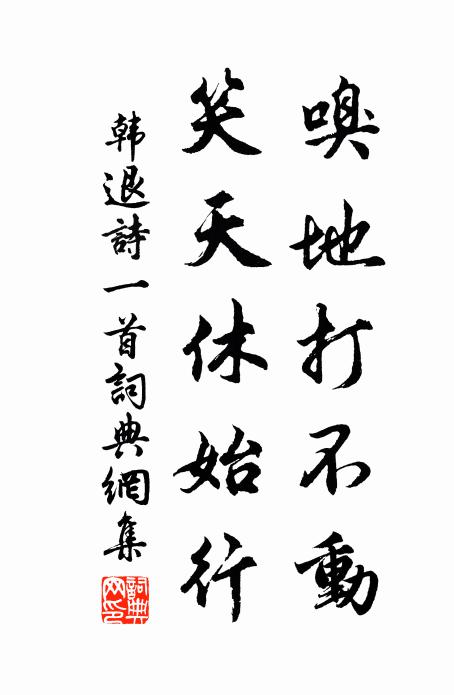 嗅地打不動
笑天休始行
韓退詩一首詞典網集
詞典